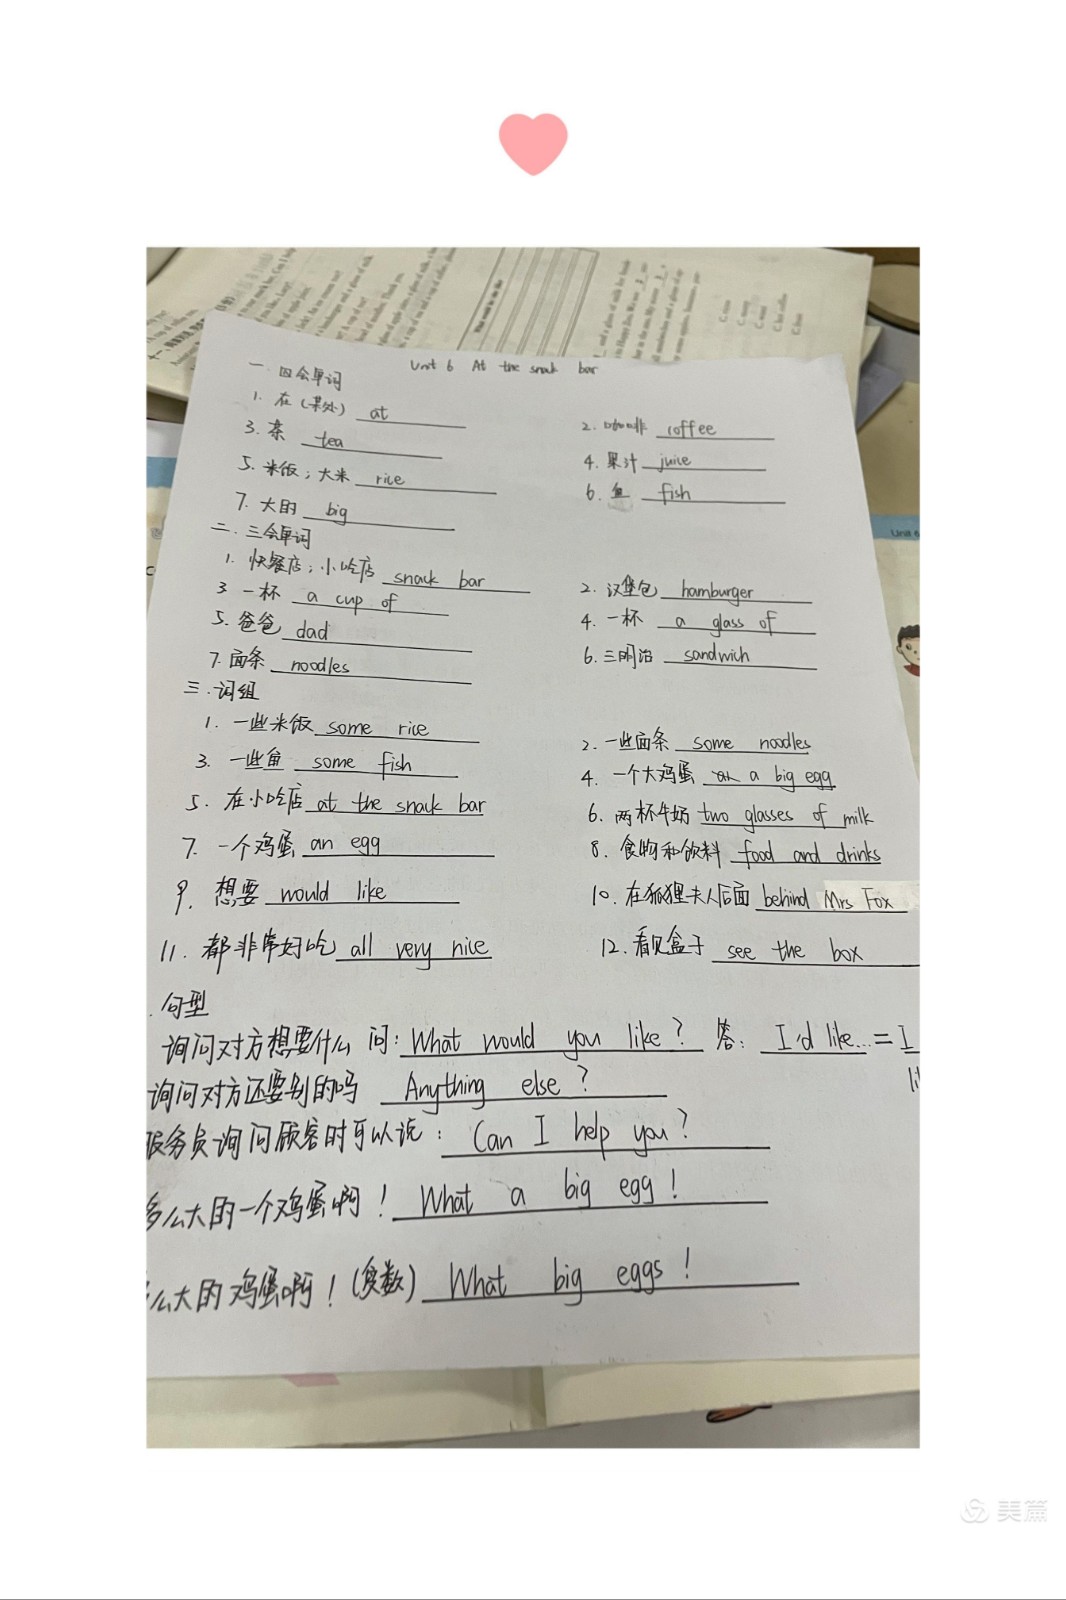 Unit 6 At the snack bar
一. 四会单词
1. 在(某处) at
2. 咖啡 coffee
3. 茶 tea
4. 果汁 juice
5. 米饭；大米 rice
6. 鱼 fish
7. 大的 big
二. 三会单词
1. 快餐店；小吃店 snack bar
2. 汉堡包 hamburger
3 一杯 a cup of
4. 一杯 a glass of
5. 爸爸 dad
6. 三明治 sandwich
7. 面条 noodles
三. 词组
1. 一些米饭 some rice
2. 一些面条 some noodles
3. 一些鱼 some fish
4. 一个大鸡蛋 a big egg
5. 在小吃店 at the snack bar
6. 两杯牛奶 two glasses of milk
7. 一个鸡蛋 an egg
8. 食物和饮料 food and drinks
9. 想要 would like
10. 在狐狸夫人后面 behind Mrs Fox
11. 都非常好吃 all very nice
12. 看见盒子 see the box
. 句型
询问对方想要什么 问: What would you like? 答: I'd like... = I
询问对方还要别的吗 Anything else?
服务员询问顾客时可以说: Can I help you?
多么大的一个鸡蛋啊! What a big egg!
么大的鸡蛋啊!(复数) What big eggs!
Unit 6
美篇